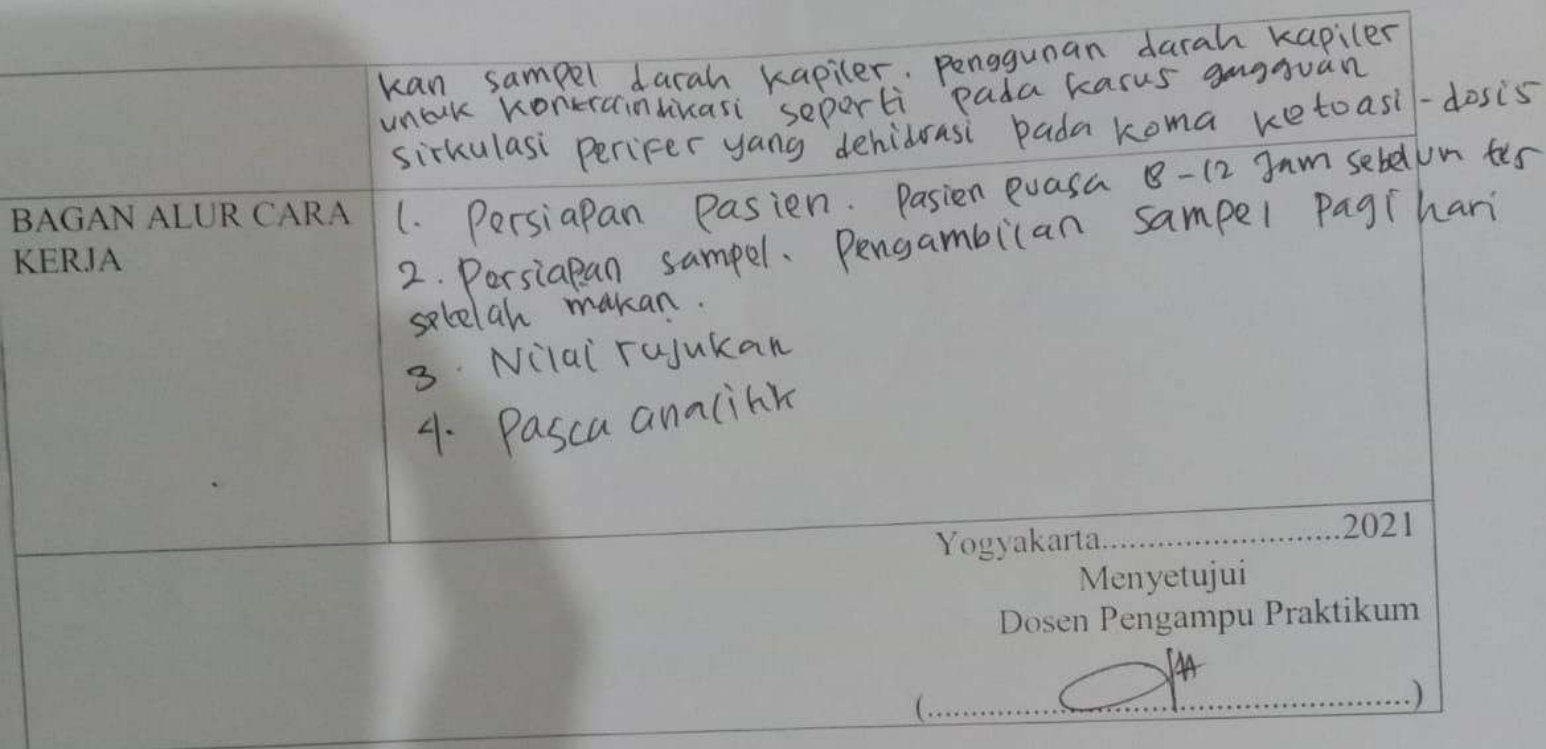 kan sampel darah kapiler. penggunan darah kapiler
untuk kontraindikasi seperti pada kasus gangguan
sirkulasi perifer yang dehidrasi pada koma ketoasi-dosis
BAGAN ALUR CARA KERJA
1. Persiapan Pasien. Pasien puasa 8-12 Jam sebelum tes
2. Persiapan sampel. Pengambilan sampel pagi hari
setelah makan.
3. Nilai rujukan
4. Pasca analitik
Yogyakarta...........................2021
Menyetujui
Dosen Pengampu Praktikum
(......................................................)